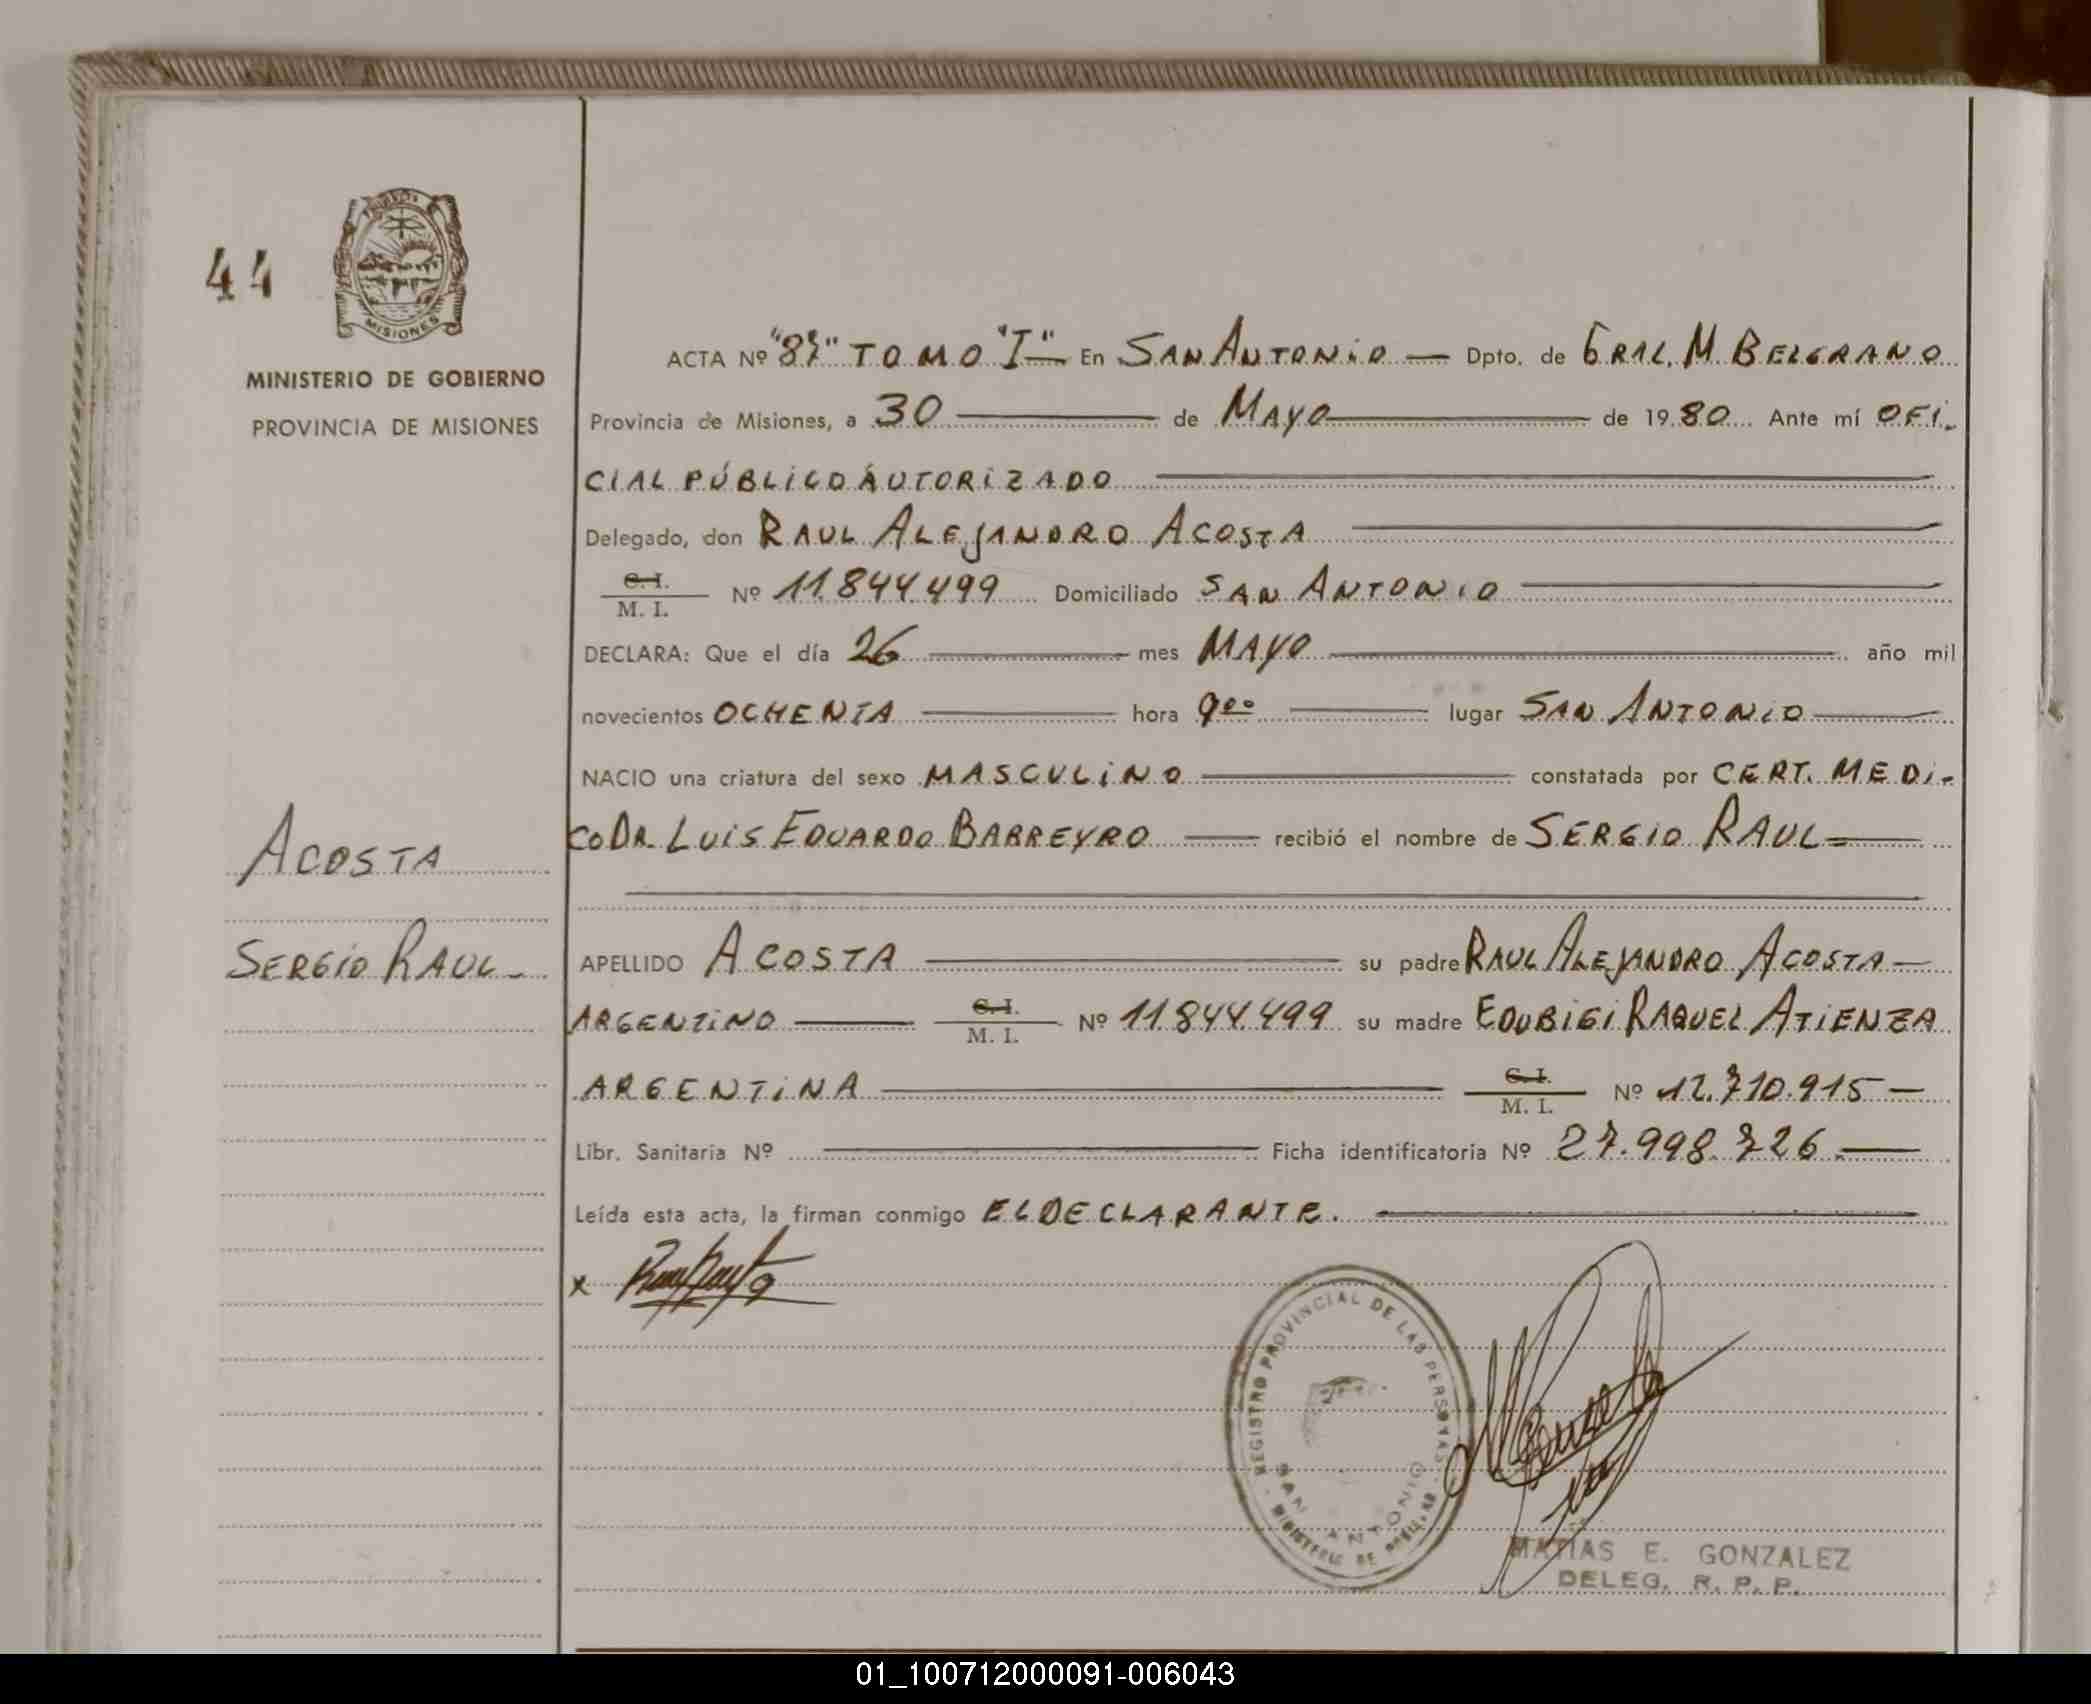 44
MISIONES
MINISTERIO DE GOBIERNO
PROVINCIA DE MISIONES
ACOSTA
SERGIO RAUL
ACTA Nº "87" TOMO "I" En SAN ANTONIO Dpto. de GRAL. M BELGRANO
Provincia de Misiones, a 30 de MAYO de 1980 Ante mí OFI-
CIAL PÚBLICO AUTORIZADO
Delegado, don RAUL ALEJANDRO ACOSTA
C. I.
M. I. Nº 11.844.499 Domiciliado SAN ANTONIO
DECLARA: Que el día 26 mes MAYO año mil
novecientos OCHENTA hora 9⁰⁰ lugar SAN ANTONIO
NACIO una criatura del sexo MASCULINO constatada por CERT. MEDI-
CO DR. LUIS EDUARDO BARREYRO recibió el nombre de SERGIO RAUL
APELLIDO ACOSTA su padre RAUL ALEJANDRO ACOSTA
ARGENTINO C. I. M. I. Nº 11.844.499 su madre EDUBIGI RAQUEL ATIENZA
ARGENTINA C. I. M. I. Nº 12.710.915
Libr. Sanitaria Nº Ficha identificatoria Nº 27.998.726
Leída esta acta, la firman conmigo EL DECLARANTE.
x
REGISTRO PROVINCIAL DE LAS PERSONAS
SAN ANTONIO
MINISTERIO DE
MATIAS E. GONZALEZ
DELEG. R. P. P.
01_100712000091-006043